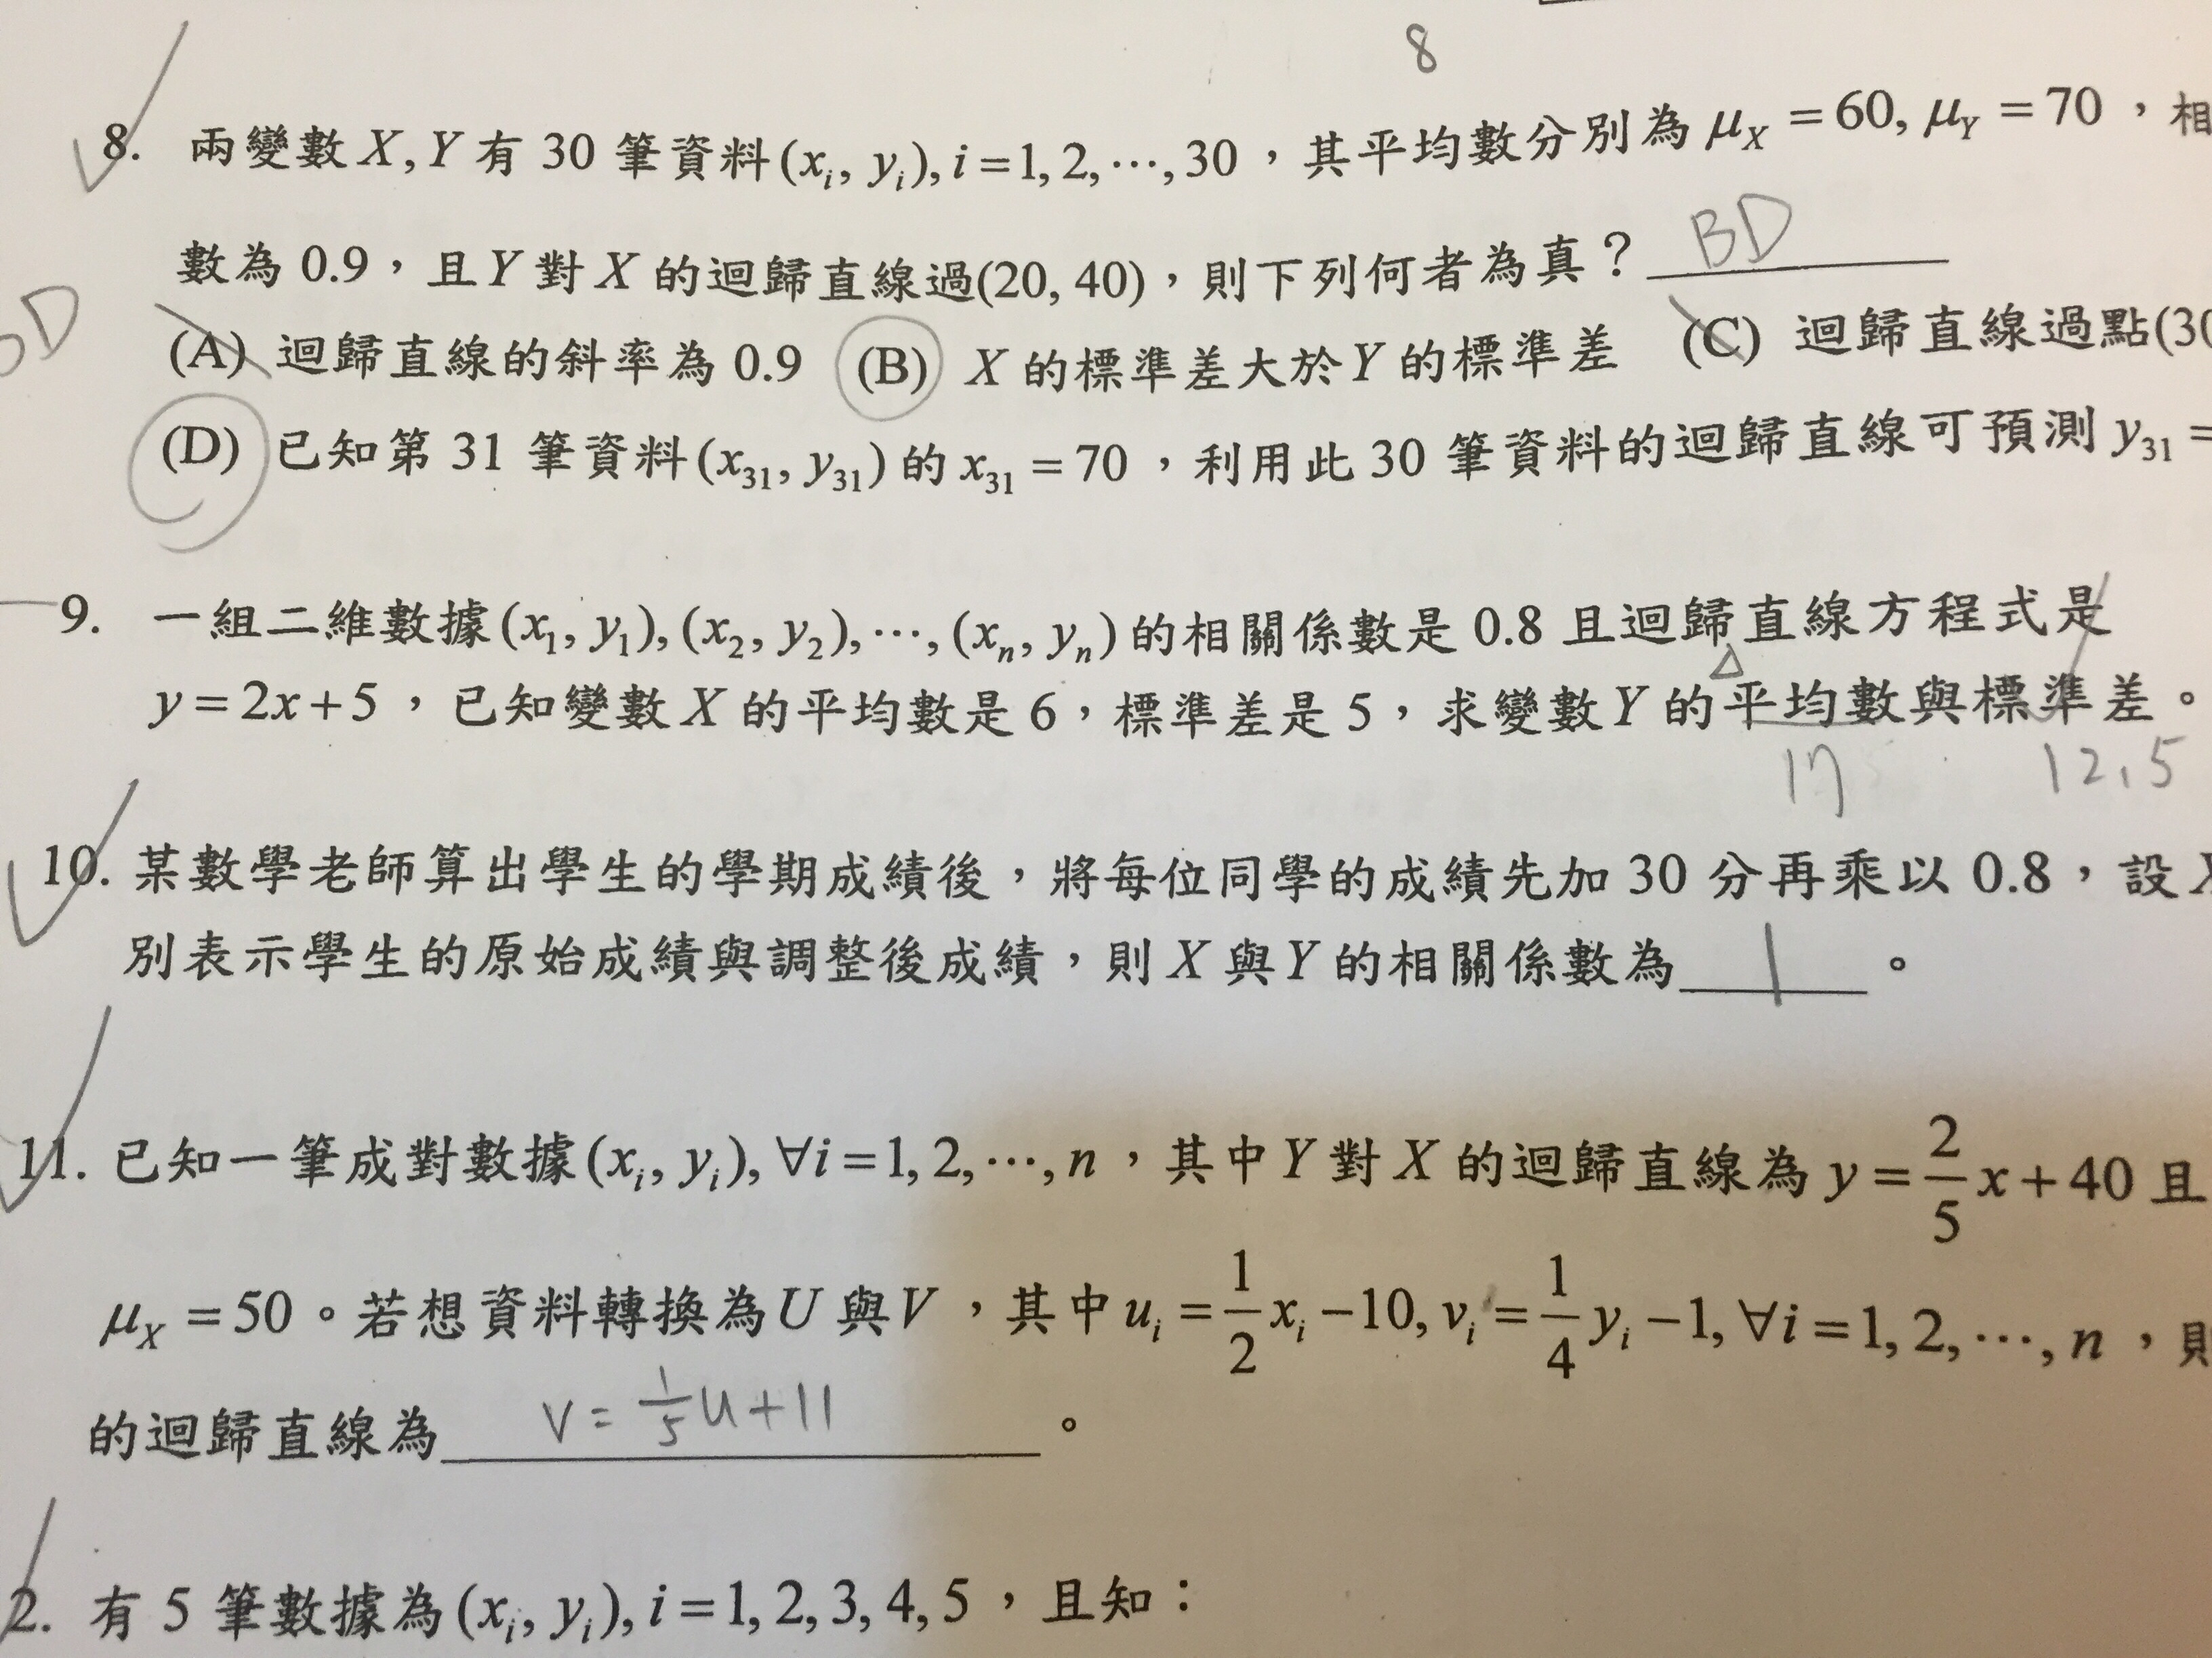 8
8. 兩變數 X, Y 有 30 筆資料 (xᵢ, yᵢ), i = 1, 2, ⋯, 30,其平均數分別為 μ_X = 60, μ_Y = 70,相
數為 0.9,且 Y 對 X 的迴歸直線過(20, 40),則下列何者為真? BD
D
(A) 迴歸直線的斜率為 0.9 (B) X 的標準差大於 Y 的標準差 (C) 迴歸直線過點(30
(D) 已知第 31 筆資料 (x₃₁, y₃₁) 的 x₃₁ = 70,利用此 30 筆資料的迴歸直線可預測 y₃₁ =
9. 一組二維數據 (x₁, y₁), (x₂, y₂), ⋯, (xₙ, yₙ) 的相關係數是 0.8 且迴歸直線方程式是
y = 2x + 5,已知變數 X 的平均數是 6,標準差是 5,求變數 Y 的平均數與標準差。
17 12.5
10. 某數學老師算出學生的學期成績後,將每位同學的成績先加 30 分再乘以 0.8,設 X
別表示學生的原始成績與調整後成績,則 X 與 Y 的相關係數為 1 。
11. 已知一筆成對數據 (xᵢ, yᵢ), ∀i = 1, 2, ⋯, n,其中 Y 對 X 的迴歸直線為 y = 2/5 x + 40 且
μ_X = 50。若想資料轉換為 U 與 V,其中 uᵢ = 1/2 xᵢ − 10, vᵢ = 1/4 yᵢ − 1, ∀i = 1, 2, ⋯, n,則
的迴歸直線為 v = 1/5 u + 11 。
2. 有 5 筆數據為 (xᵢ, yᵢ), i = 1, 2, 3, 4, 5,且知: